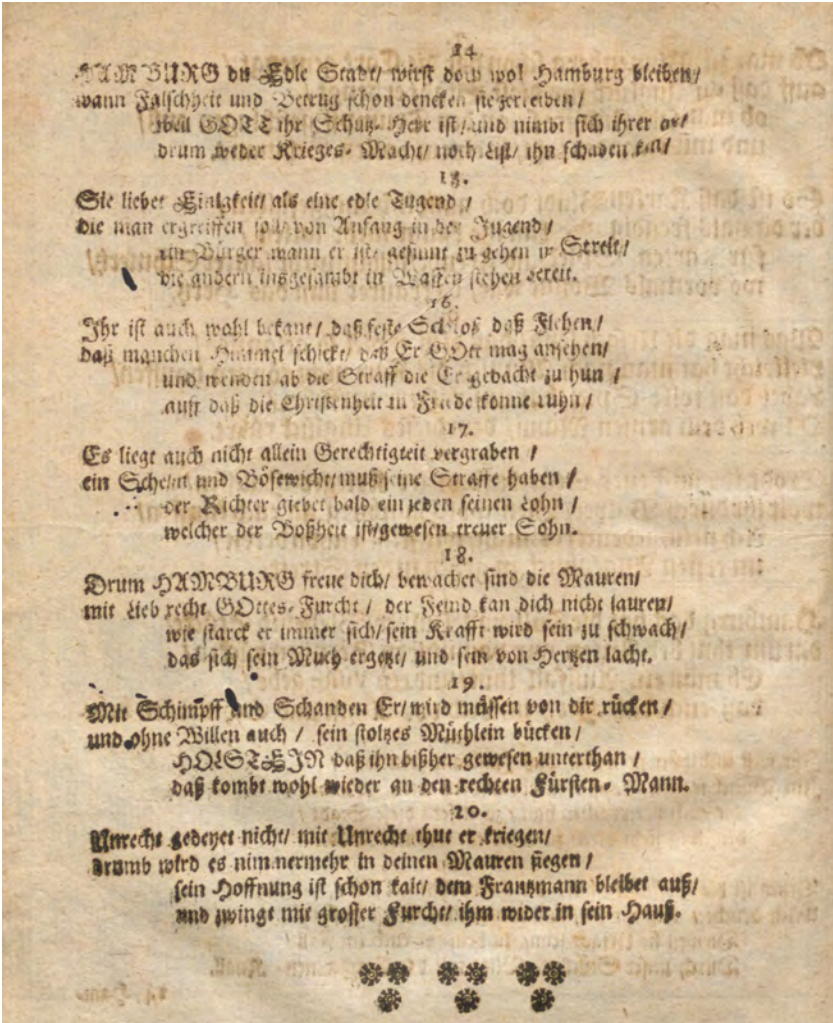 14.
HAMBURG du Edle Stadt/ wirst doch wol Hamburg bleiben/
wann Falschheit und Betrug schon dencken
weil GOTT ihr Schutz-Herr ist/ und nimbt sich ihrer an/
drum weder Krieges-Macht/ noch List/ ihn schaden kan/
15.
Sie liebet Einigkeit/ als eine edle Tugend/
die man ergreiffen soll/ von Anfang in der Jugend/
ein Bürger wann er ist/ gesinnt zu gehen in Streit/
die andern insgesambt in Waffen stehen bereit.
16.
Ihr ist auch wohl bekant/ daß feste Schloß daß Flehen/
daß manchen Himmel schickt/ daß Er GOtt mag ansehen/
und wenden ab die Straff die Er gedacht zu thun/
auff daß die Christenheit in Friede könne ruhn/
17.
Es liegt auch nicht allein Gerechtigkeit vergraben/
ein Schelm und Bösewicht/ muß seine Straffe haben/
der Richter giebet bald ein jeden seinen Lohn/
welcher der Boßheit ist/ gewesen treuer Sohn.
18.
Drum HAMBURG freue dich/ bewachet sind die Mauren/
mit Lieb recht GOttes-Furcht/ der Feind kan dich nicht lauren/
wie starck er immer sich/ sein Krafft wird sein zu schwach/
das sich sein Muth ergetzt/ und sein von Hertzen lacht.
19.
Mit Schimpff und Schanden Er/ wird müssen von dir rücken/
und ohne Willen auch/ sein stoltzes Müthlein bücken/
HOLSTEIN daß ihn bißher gewesen unterthan/
daß kombt wohl wieder an den rechten Fürsten-Mann.
20.
Unrecht gedeyet nicht/ mit Unrecht thut er kriegen/
drumb wird es nimmermehr in deinen Mauren siegen/
sein Hoffnung ist schon kalt/ dem Frantzmann bleibet auß/
und zwingt mit grosser Furcht/ ihm wider in sein Hauß.